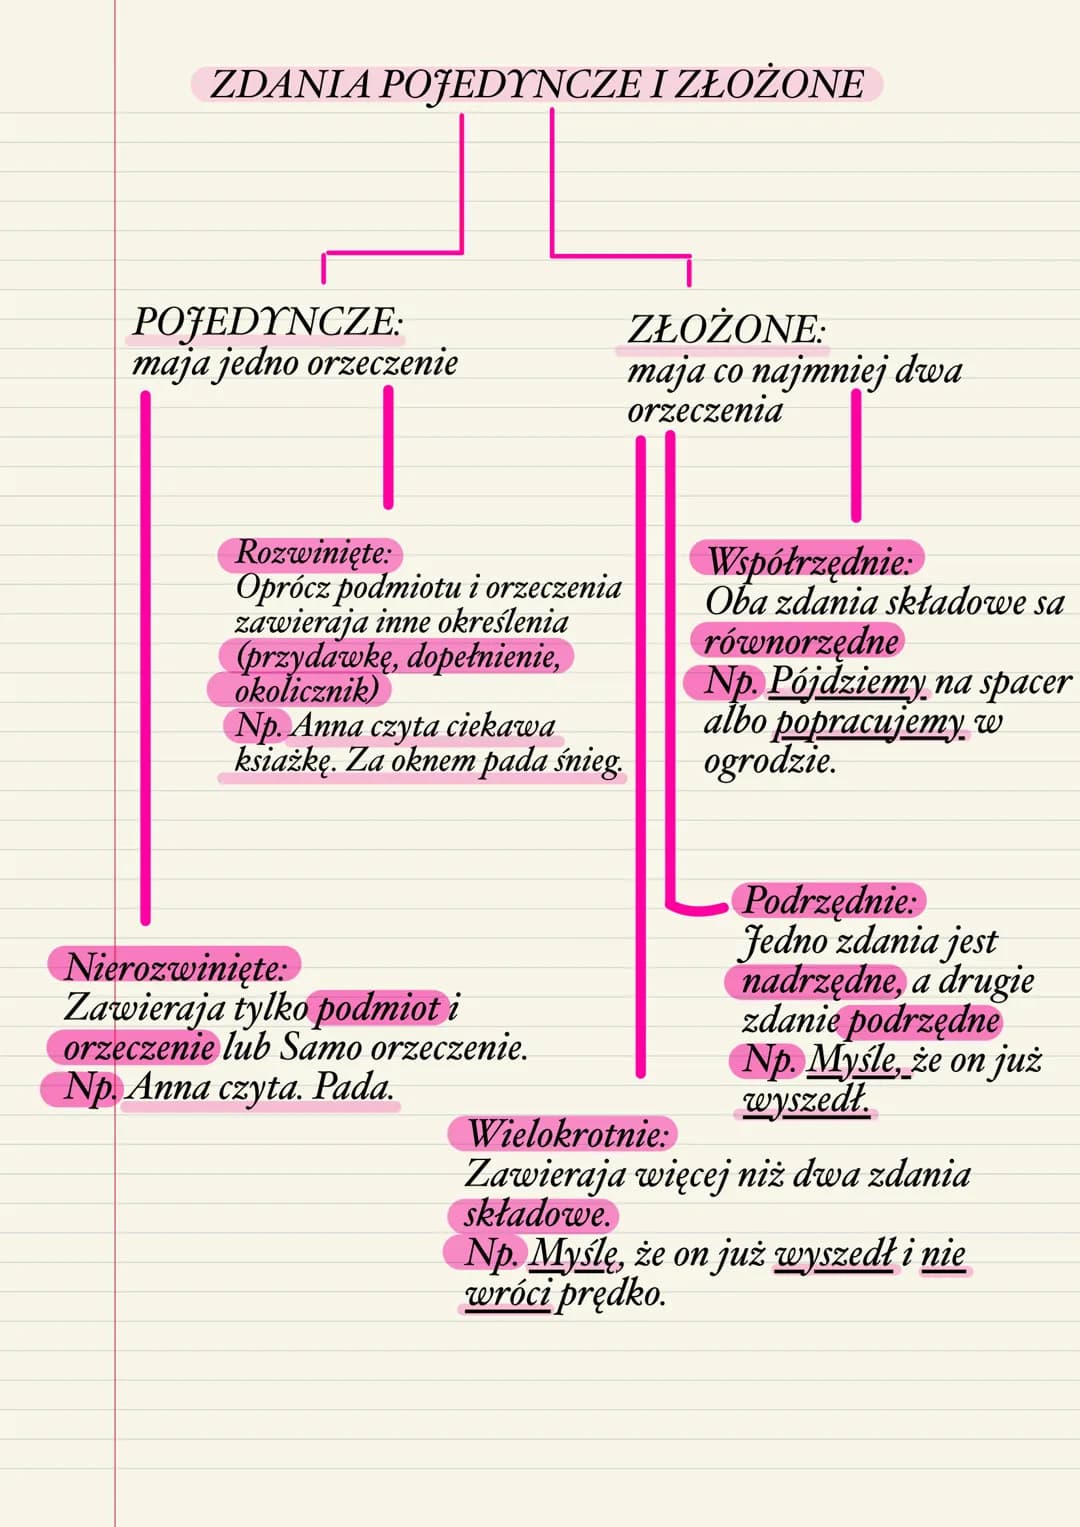 ZDANIA POJEDYNCZE I ZŁOŻONE
POJEDYNCZE:
maja jedno orzeczenie
ZŁOŻONE:
maja co najmniej dwa
orzeczenia
Rozwinięte:
Oprócz podmiotu i orzeczenia
zawieraja inne określenia
(przydawkę, dopełnienie,
okolicznik)
Np. Anna czyta ciekawa
ksiażkę. Za oknem pada śnieg.
Współrzędnie:
Oba zdania składowe sa
równorzędne
Np. Pójdziemy na spacer
albo popracujemy w
ogrodzie.
Podrzędnie:
Jedno zdania jest
nadrzędne, a drugie
zdanie podrzędne
Np. Myśle, że on już
wyszedł.
Nierozwinięte:
Zawieraja tylko podmiot i
orzeczenie lub Samo orzeczenie.
Np. Anna czyta. Pada.
Wielokrotnie:
Zawieraja więcej niż dwa zdania
składowe.
Np. Myślę, że on już wyszedł i nie
wróci prędko.